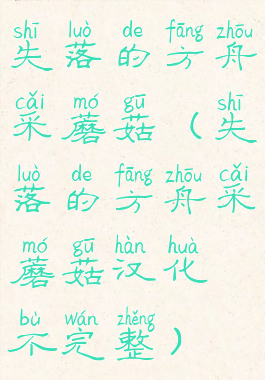 shī luò de fāng zhōu
失落的方舟
cǎi mó gū shī
采蘑菇（失
luò de fāng zhōu cǎi
落的方舟采
mó gū hàn huà
蘑菇汉化
bù wán zhěng
不完整）